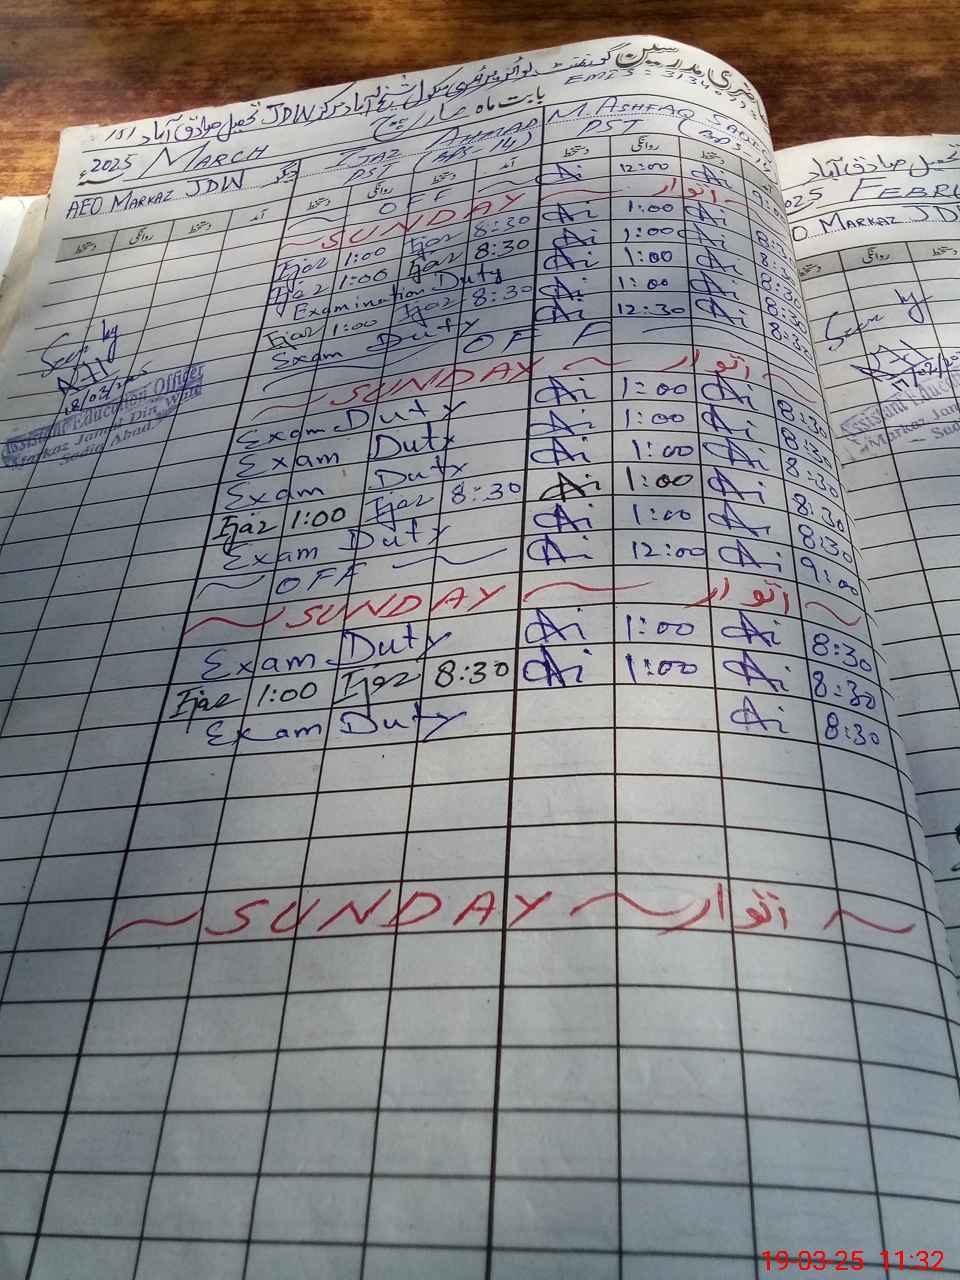 حاضری مدرسین گورنمنٹ
EMIS: 3134
مرکز JDW تحصیل صادق آباد
بابت ماہ مارچ
2025 MARCH
AEO MARKAZ JDW
IJAZ AHMAD
PST (BPS-14)
M ASHFAQ
PST
دستخط روانگی دستخط آمد دستخط روانگی دستخط آمد دستخط روانگی دستخط آمد
OFF Ai 12:00 Ai 9:00
~ SUNDAY ~ اتوار
Ijaz 1:00 Ijaz 8:30 Ai 1:00 Ai 8:30
Ijaz 1:00 Ijaz 8:30 Ai 1:00 Ai 8:30
Examination Duty Ai 1:00 Ai 8:30
Ijaz 1:00 Ijaz 8:30 Ai 1:00 Ai 8:30
Exam Duty Ai 12:30 Ai 8:30
OFF
~ SUNDAY ~ اتوار ~
Exam Duty Ai 1:00 Ai 8:30
Exam Duty Ai 1:00 Ai 8:30
Exam Duty Ai 1:00 Ai 8:30
Ijaz 1:00 Ijaz 8:30 Ai 1:00 Ai 8:30
Exam Duty Ai 1:00 Ai 8:30
~ OFF ~ Ai 12:00 Ai 9:00
~ SUNDAY ~ اتوار ~
Exam Duty Ai 1:00 Ai 8:30
Ijaz 1:00 Ijaz 8:30 Ai 1:00 Ai 8:30
Exam Duty Ai 8:30
~ SUNDAY ~ اتوار ~
Seen by
Assistant Education Officer
Markaz Jamal Din Wali
Sadiq Abad
تحصیل صادق آباد
2025 FEBRU
O MARKAZ JD
دستخط روانگی دستخط
Seen by
Assistant Educa
Markaz Jam
19-03-25 11:32